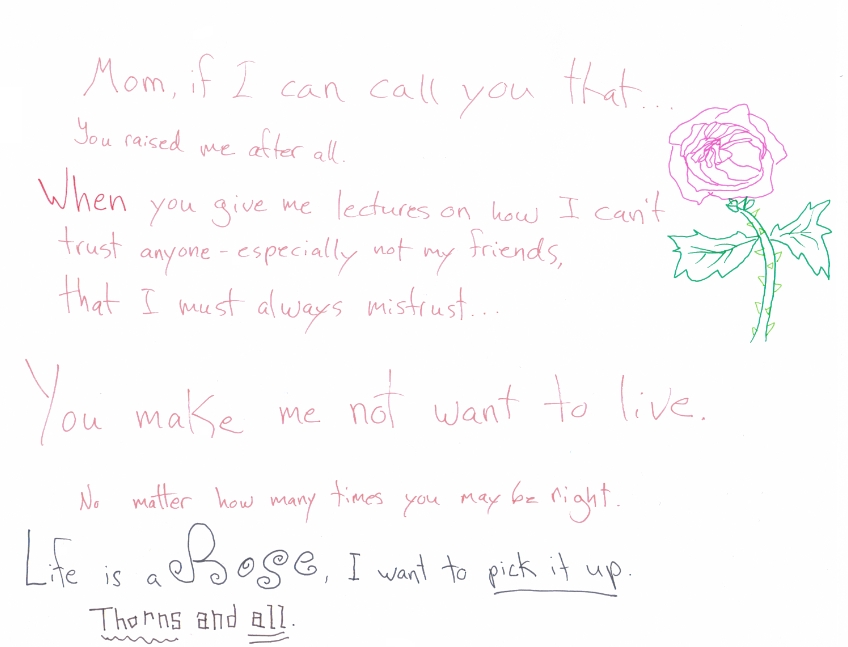 Mom, if I can call you that...
You raised me after all.
When you give me lectures on how I can't
trust anyone - especially not my friends,
that I must always mistrust...
You make me not want to live.
No matter how many times you may be right.
Life is a Rose, I want to pick it up.
Thorns and all.